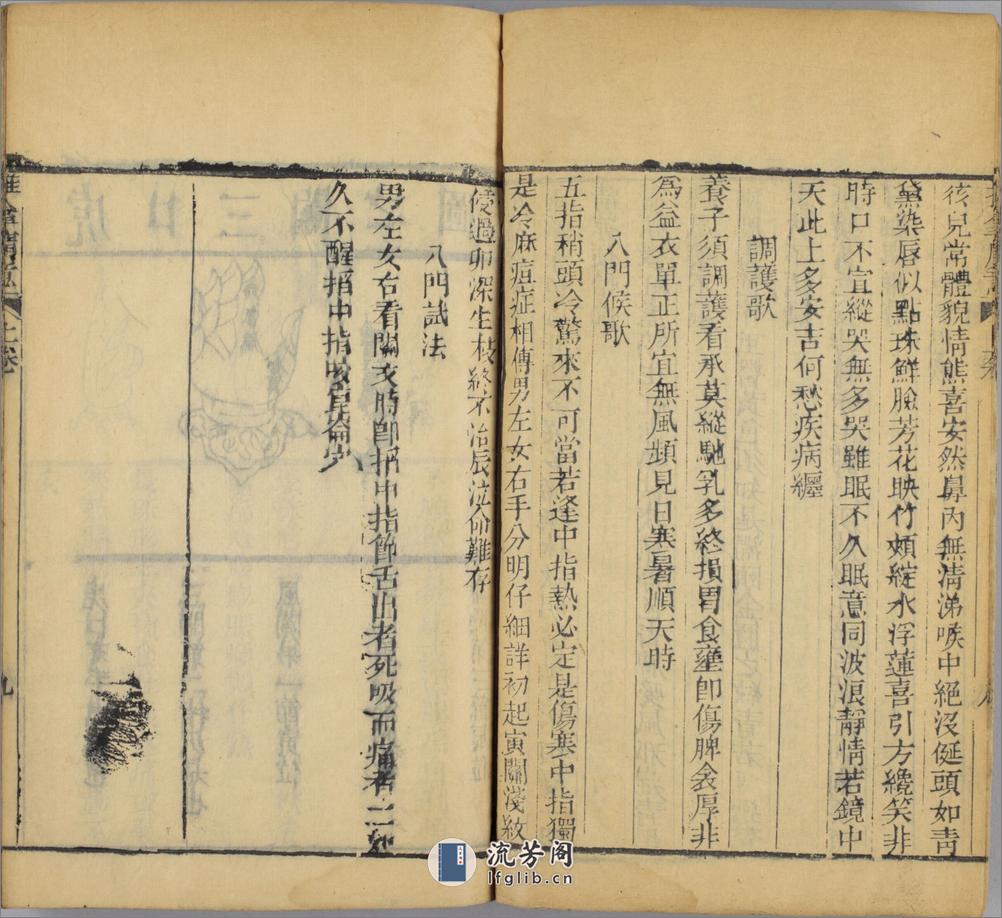 孩兒常體貌情態喜安然鼻內無清涕喉中絕沒㖿頭如青
黛染唇似點珠鮮臉芳花映竹頰綻水浮蓮喜引方纔笑非
時口不宜縱哭無多哭雖眠不久眠意同波浪靜情若鏡中
天此上多安吉何愁疾病纏
調護歌
養子須調護看承莫縱馳乳多終損胃食壅即傷脾衾厚非
為益衣單正所宜無風頻見日寒暑順天時
八門候歌
五指稍頭冷驚來不可當若逢中指熱必定是傷寒中指獨
是冷麻痘症相傳男左女右手分明仔細詳初起寅關淺紋
侵過卯深生枝終不治辰泣命難存
八門試法
男左女右看關文時即掐中指節舌出者死吸而痛者之
久不醒掐中指咳崑崙
上卷
九
流芳阁
lfglib.cn